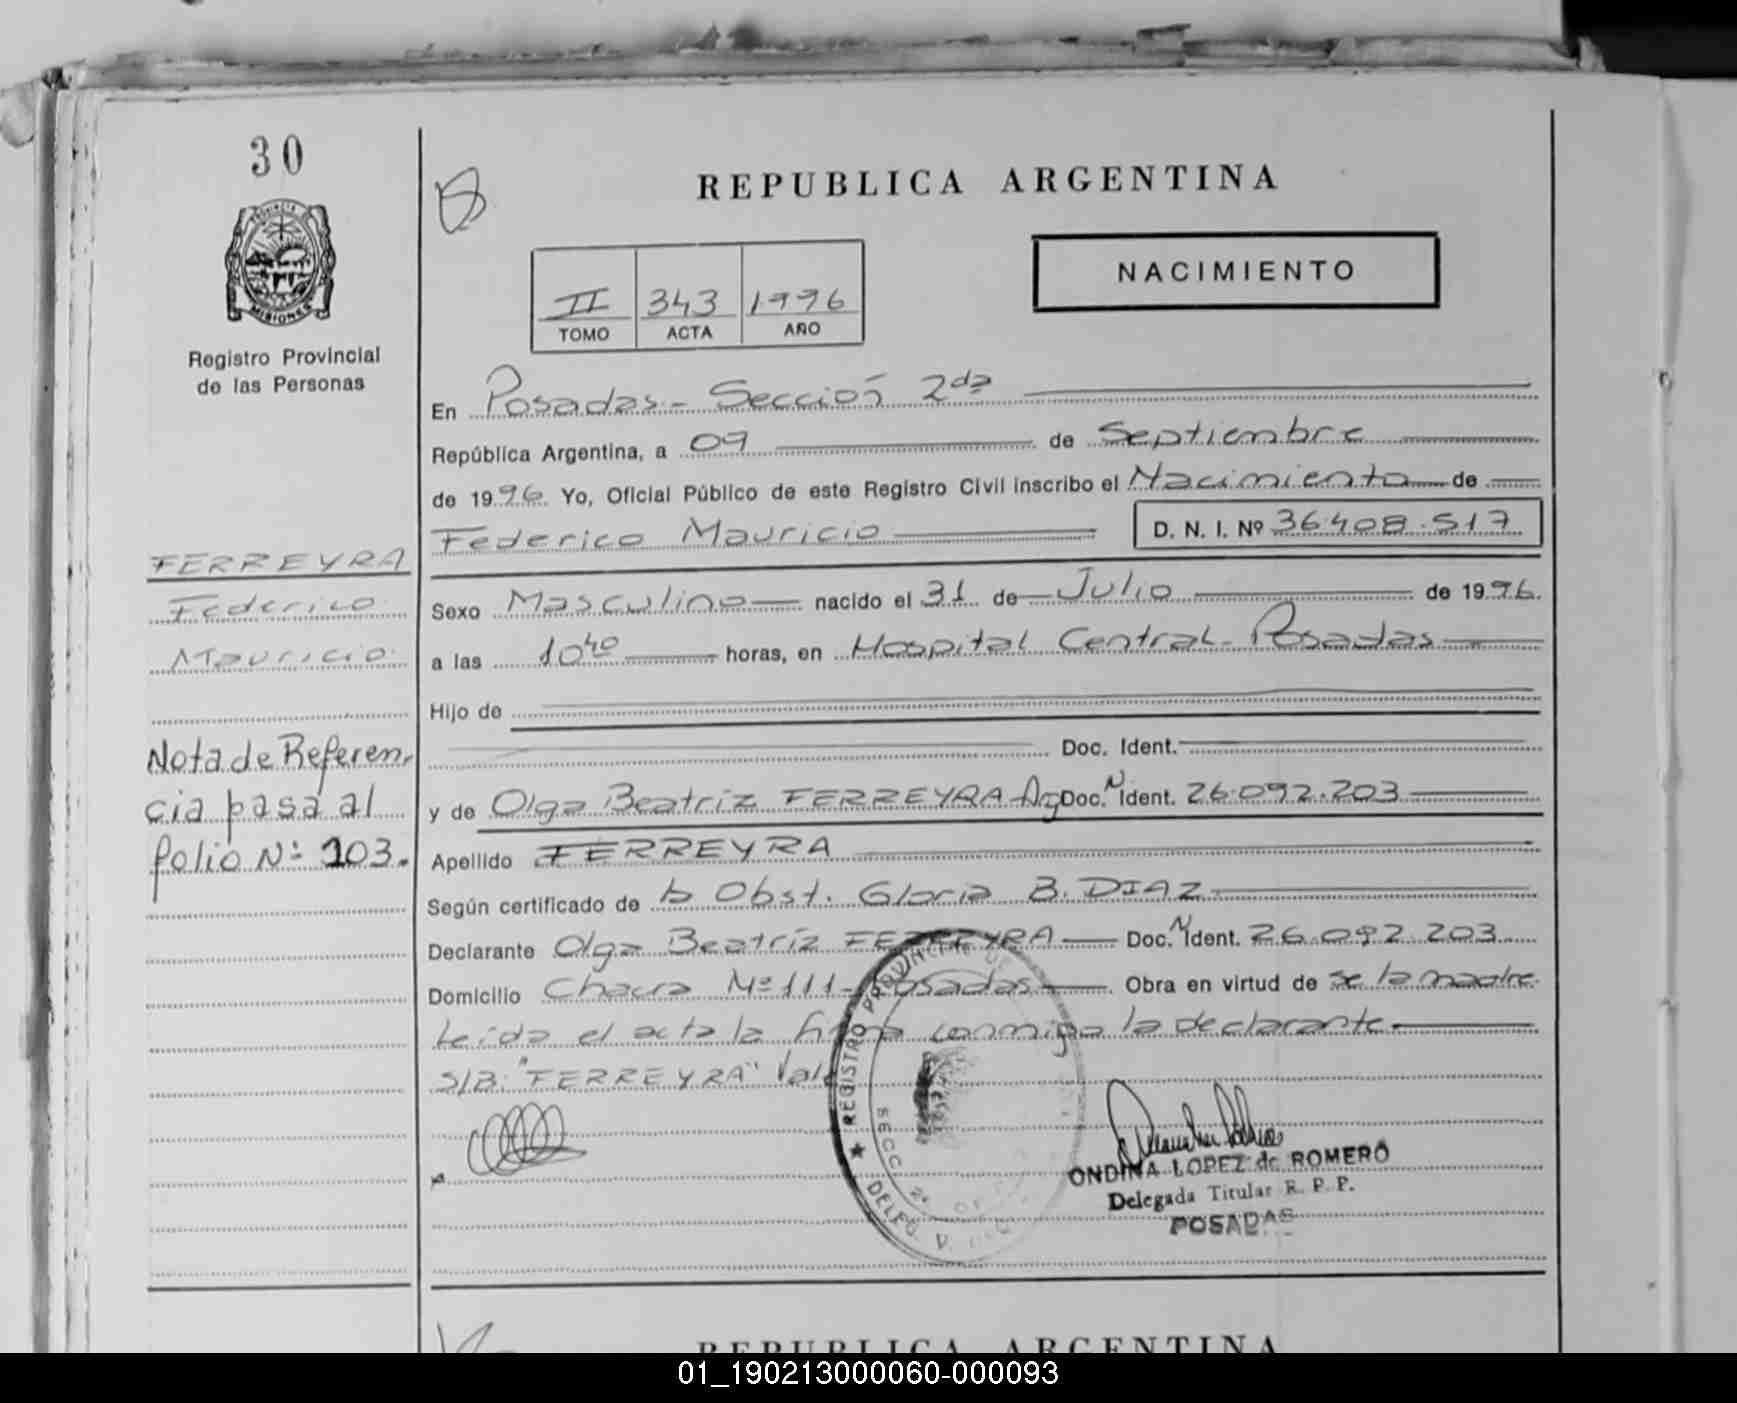 30
PROVINCIA
MISIONES
Registro Provincial
de las Personas
FERREYRA
Federico
Mauricio
Nota de Referen-
cia pasa al
folio Nº 103.
REPUBLICA ARGENTINA
NACIMIENTO
II 343 1996
TOMO ACTA AÑO
En Posadas - Sección 2da
República Argentina, a 09 de Septiembre
de 1996 Yo, Oficial Público de este Registro Civil inscribo el Nacimiento de
Federico Mauricio D. N. I. Nº 36.408.517
Sexo Masculino nacido el 31 de Julio de 1996.
a las 10 40 horas, en Hospital Central - Posadas
Hijo de
Doc. Ident.
y de Olga Beatriz FERREYRA Arg Doc. N Ident. 26.092.203
Apellido FERREYRA
Según certificado de la Obst. Gloria B. DIAZ
Declarante Olga Beatriz FERREYRA Doc. N Ident. 26.092.203
Domicilio Chacra Nº 111 - Posadas Obra en virtud de se la madre.
Leída el acta la firma conmigo la declarante
S/B: "FERREYRA" Vale
REGISTRO PROVINCIAL DE
SECC 2ª
DELEG
ONDINA LOPEZ de ROMERO
Delegada Titular R. P. P.
POSADAS
REPUBLICA ARGENTINA
01_190213000060-000093